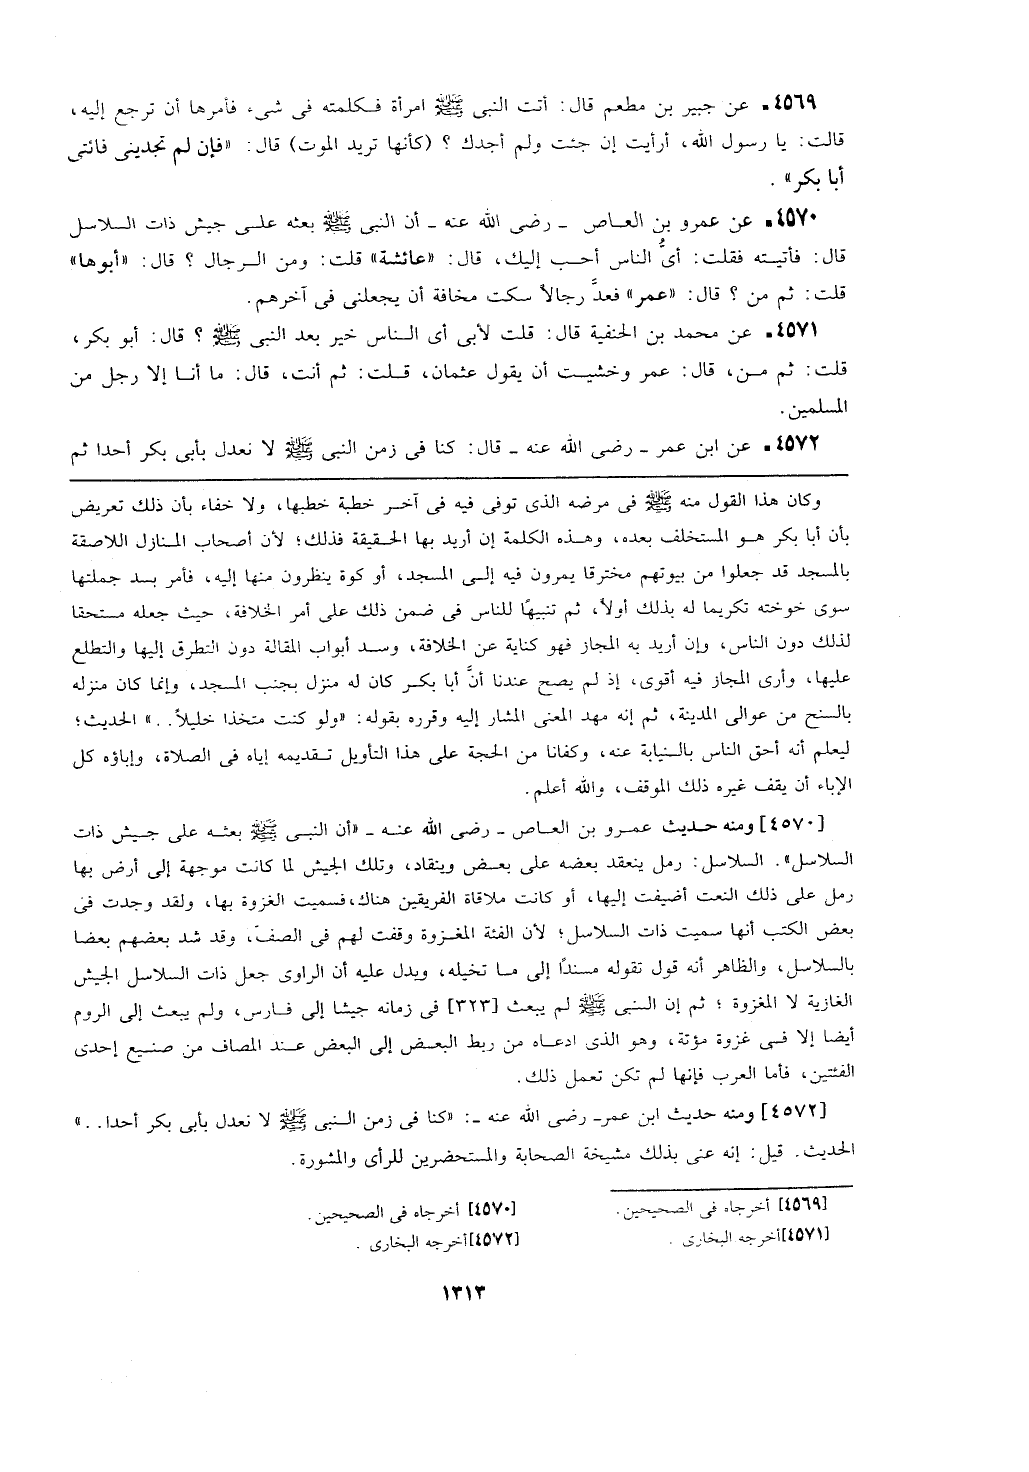 ٤٥٦٩. عن جبير بن مطعم قال: أتت النبى ﷺ امرأة فكلمته فى شىء فأمرها أن ترجع إليه،
قالت: يا رسول الله، أرأيت إن جئت ولم أجدك ؟ (كأنها تريد الموت) قال: «فإن لم تجدينى فائتى
أبا بكر» .
٤٥٧٠. عن عمرو بن العاص - رضى الله عنه - أن النبى ﷺ بعثه على جيش ذات السلاسل
قال: فأتيته فقلت: أىُّ الناس أحب إليك، قال: «عائشة» قلت: ومن الرجال ؟ قال: «أبوها»
قلت: ثم من ؟ قال: «عمر» فعدَّ رجالاً سكت مخافة أن يجعلنى فى آخرهم.
٤٥٧١. عن محمد بن الحنفية قال: قلت لأبى أى الناس خير بعد النبى ﷺ ؟ قال: أبو بكر،
قلت: ثم من، قال: عمر وخشيت أن يقول عثمان، قلت: ثم أنت، قال: ما أنا إلا رجل من
المسلمين.
٤٥٧٢. عن ابن عمر - رضى الله عنه - قال: كنا فى زمن النبى ﷺ لا نعدل بأبى بكر أحدا ثم
وكان هذا القول منه ﷺ فى مرضه الذى توفى فيه فى آخر خطبة خطبها، ولا خفاء بأن ذلك تعريض
بأن أبا بكر هو المستخلف بعده، وهذه الكلمة إن أريد بها الحقيقة فذلك؛ لأن أصحاب المنازل اللاصقة
بالمسجد قد جعلوا من بيوتهم مخترقا يمرون فيه إلى المسجد، أو كوة ينظرون منها إليه، فأمر بسد جملتها
سوى خوخته تكريما له بذلك أولاً، ثم تنبيهًا للناس فى ضمن ذلك على أمر الخلافة، حيث جعله مستحقا
لذلك دون الناس، وإن أريد به المجاز فهو كناية عن الخلافة، وسد أبواب المقالة دون التطرق إليها والتطلع
عليها، وأرى المجاز فيه أقوى، إذ لم يصح عندنا أنَّ أبا بكر كان له منزل بجنب المسجد، وإنما كان منزله
بالسنح من عوالى المدينة، ثم إنه مهد المعنى المشار إليه وقرره بقوله: «ولو كنت متخذا خليلاً..» الحديث؛
ليعلم أنه أحق الناس بالنيابة عنه، وكفانا من الحجة على هذا التأويل تقديمه إياه فى الصلاة، وإباؤه كل
الإباء أن يقف غيره ذلك الموقف، والله أعلم.
[٤٥٧٠] ومنه حديث عمرو بن العاص - رضى الله عنه - «أن النبى ﷺ بعثه على جيش ذات
السلاسل». السلاسل: رمل ينعقد بعضه على بعض وينقاد، وتلك الجيش لما كانت موجهة إلى أرض بها
رمل على ذلك النعت أضيفت إليها، أو كانت ملاقاة الفريقين هناك،فسميت الغزوة بها، ولقد وجدت فى
بعض الكتب أنها سميت ذات السلاسل؛ لأن الفئة المغزوة وقفت لهم فى الصف، وقد شد بعضهم بعضا
بالسلاسل، والظاهر أنه قول تقوله مسندًا إلى ما تخيله، ويدل عليه أن الراوى جعل ذات السلاسل الجيش
الغازية لا المغزوة ؛ ثم إن النبى ﷺ لم يبعث [٣٢٣] فى زمانه جيشا إلى فارس، ولم يبعث إلى الروم
أيضا إلا فى غزوة مؤتة، وهو الذى ادعاه من ربط البعض إلى البعض عند المصاف من صنيع إحدى
الفئتين، فأما العرب فإنها لم تكن تعمل ذلك.
[٤٥٧٢] ومنه حديث ابن عمر- رضى الله عنه -: «كنا فى زمن النبى ﷺ لا نعدل بأبى بكر أحدا..»
الحديث. قيل: إنه عنى بذلك مشيخة الصحابة والمستحضرين للرأى والمشورة.
[٤٥٦٩] أخرجاه فى الصحيحين.
[٤٥٧٠] أخرجاه فى الصحيحين.
[٤٥٧١]أخرجه البخارى .
[٤٥٧٢]أخرجه البخارى .
١٣١٣